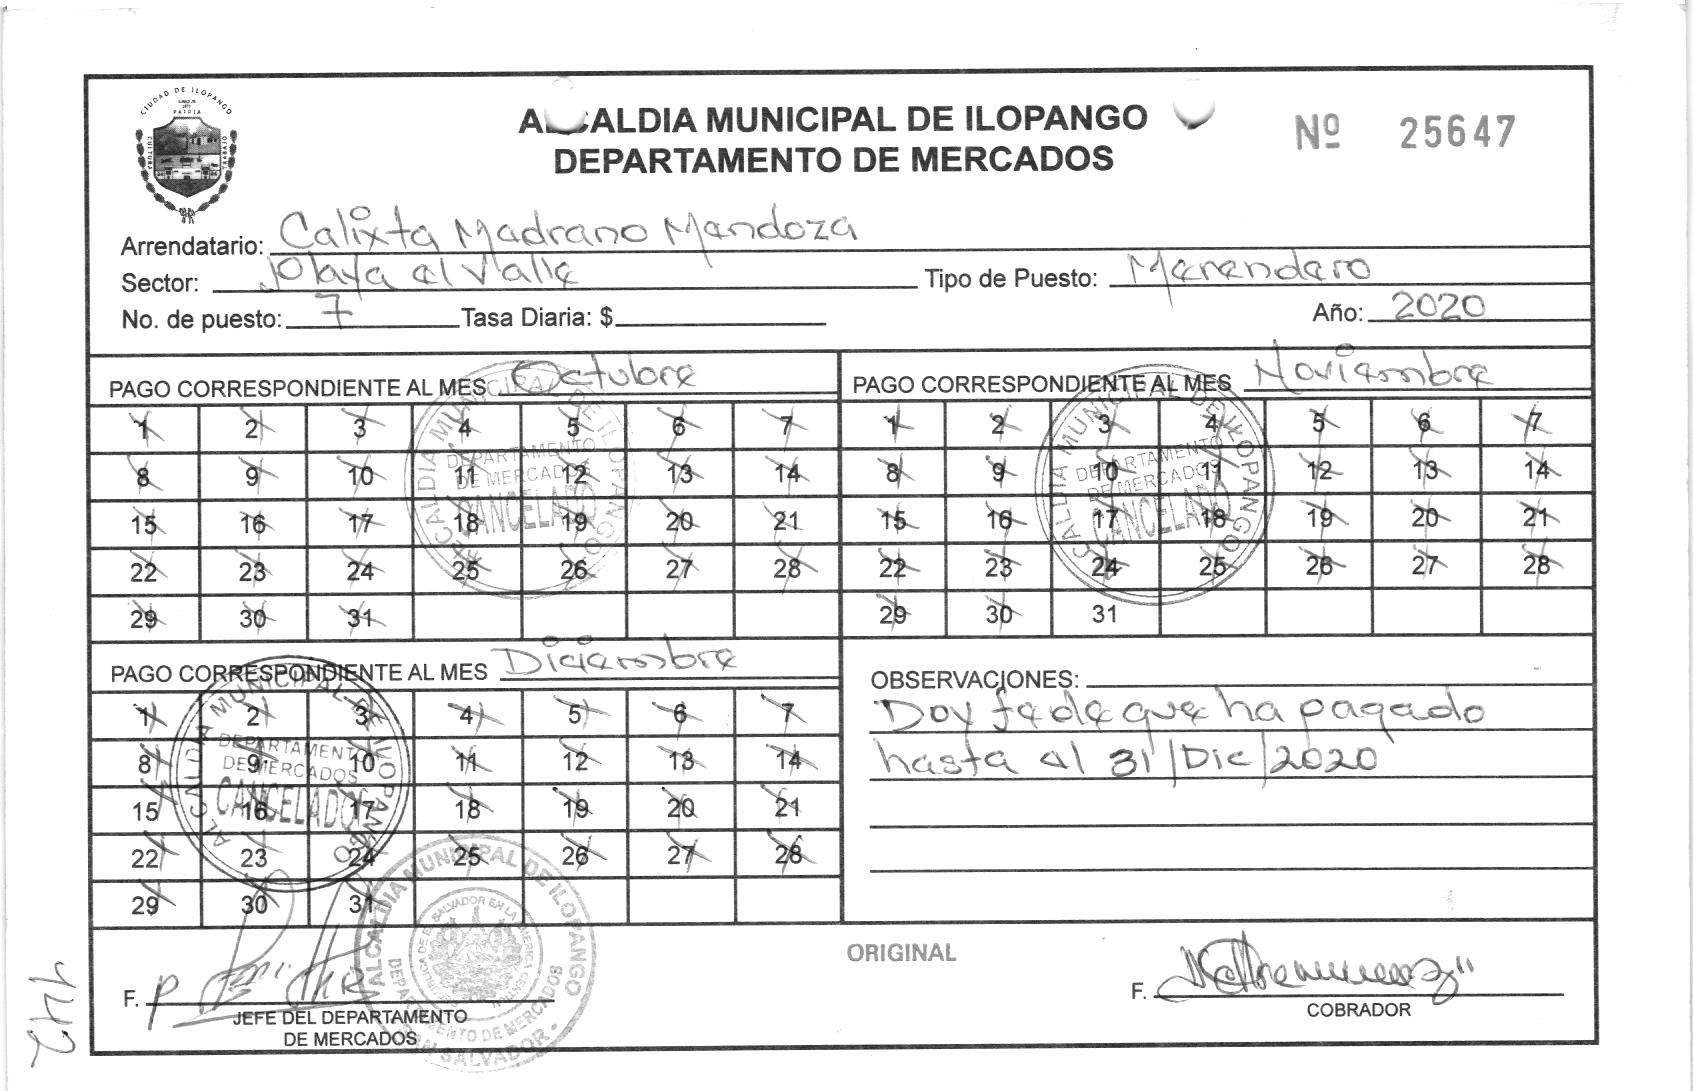 CIUDAD DE ILOPANGO
PATRIA
CULTURA
ALCALDIA MUNICIPAL DE ILOPANGO
DEPARTAMENTO DE MERCADOS
Nº 25647
Arrendatario: Calixta Madrano Mandoza
Sector: playa al Valle Tipo de Puesto: Marandaro
No. de puesto: 7 Tasa Diaria: $ Año: 2020
PAGO CORRESPONDIENTE AL MES Octubre
1 2 3 4 5 6 7
8 9 10 11 12 13 14
15 16 17 18 19 20 21
22 23 24 25 26 27 28
29 30 31
ALCALDIA MUNICIPAL DE ILOPANGO
DEPARTAMENTO
DE MERCADOS
CANCELADO
PAGO CORRESPONDIENTE AL MES Noviambre
1 2 3 4 5 6 7
8 9 10 11 12 13 14
15 16 17 18 19 20 21
22 23 24 25 26 27 28
29 30 31
ALCALDIA MUNICIPAL DE ILOPANGO
DEPARTAMENTO
DE MERCADOS
CANCELADO
PAGO CORRESPONDIENTE AL MES Diciambre
1 2 3 4 5 6 7
8 9 10 11 12 13 14
15 16 17 18 19 20 21
22 23 24 25 26 27 28
29 30 31
ALCALDIA MUNICIPAL DE ILOPANGO
DEPARTAMENTO
DE MERCADOS
CANCELADO
OBSERVACIONES:
Doy fe de que ha pagado
hasta al 31/Dic/2020
ALCALDIA MUNICIPAL DE ILOPANGO
DEPARTAMENTO DE MERCADOS
SAN SALVADOR
ORIGINAL
F. P
JEFE DEL DEPARTAMENTO
DE MERCADOS
F.
COBRADOR
442